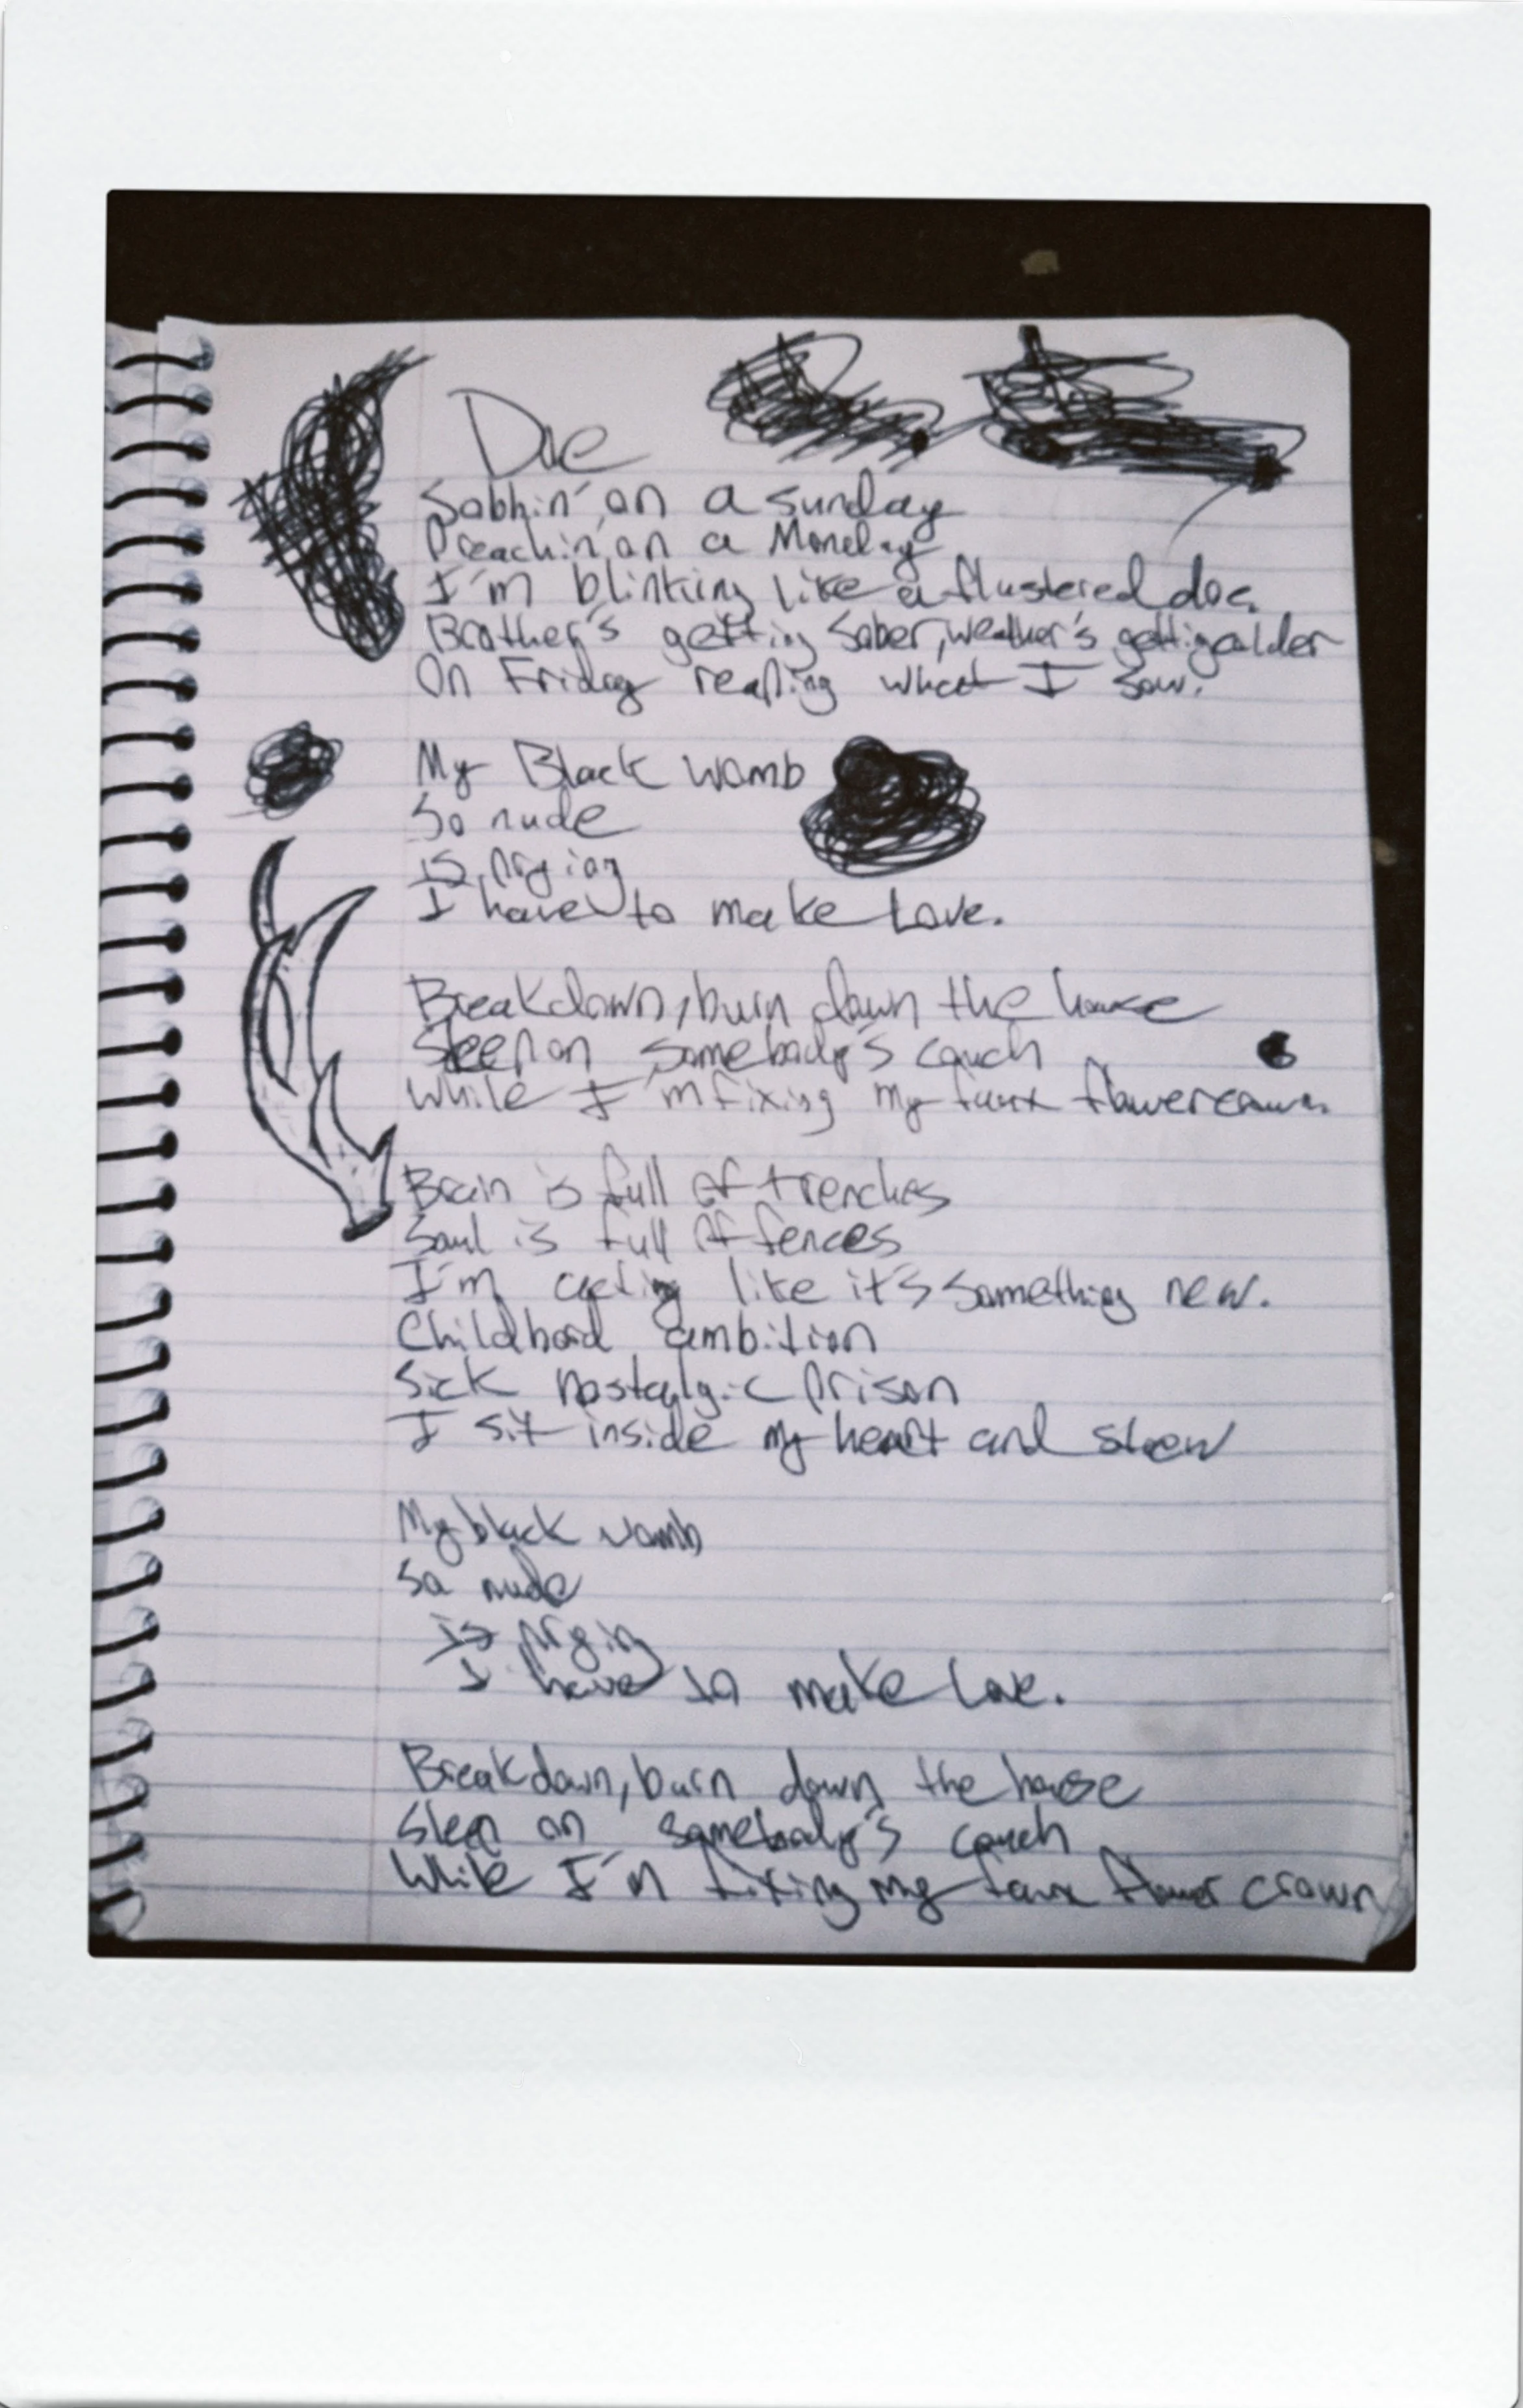 Doe
Sobbin' on a sunday
Preachin' on a Monday
I'm blinking like a flustered doe.
Brother's getting sober, weather's getting colder
On Friday reaping what I sow.
My Black womb
So nude
is prying
I have to make Love.
Breakdown, burn down the house
Sleep on somebody's couch
While I'm fixing my faux flower crown.
Brain is full of trenches
Soul is full of fences
I'm acting like it's something new.
Childhood ambition
Sick nostalgic prison
I sit inside my heart and stew
My black womb
So nude
is prying
I have to make Love.
Breakdown, burn down the house
Sleep on somebody's couch
While I'm fixing my faux flower crown